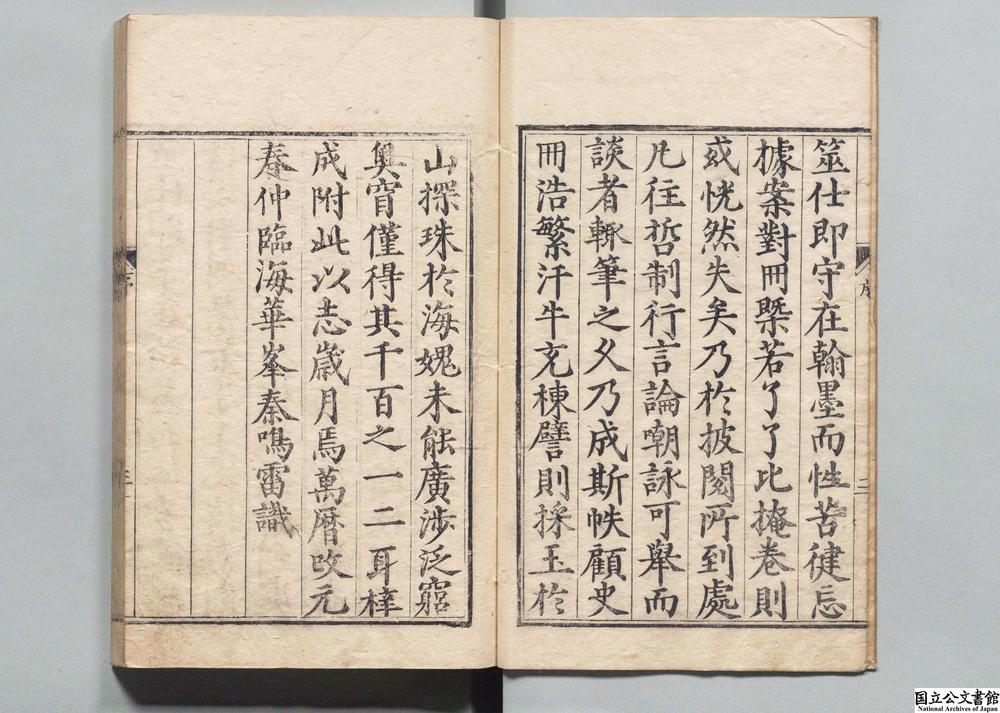 筮仕即守在翰墨而性苦健忘
據案對冊槩若了了比掩卷則
或恍然失矣乃於披閱所到處
凡往哲制行言論嘲詠可舉而
談者輒筆之久乃成斯帙顧史
冊浩繁汗牛充棟譬則採玉於
山探珠於海媿未能廣涉泛窮
奧窅僅得其千百之一二耳梓
成附此以志歲月焉萬曆改元
春仲臨海華峯秦鳴雷識
序
二
序
三
国立公文書館
National Archives of Japan